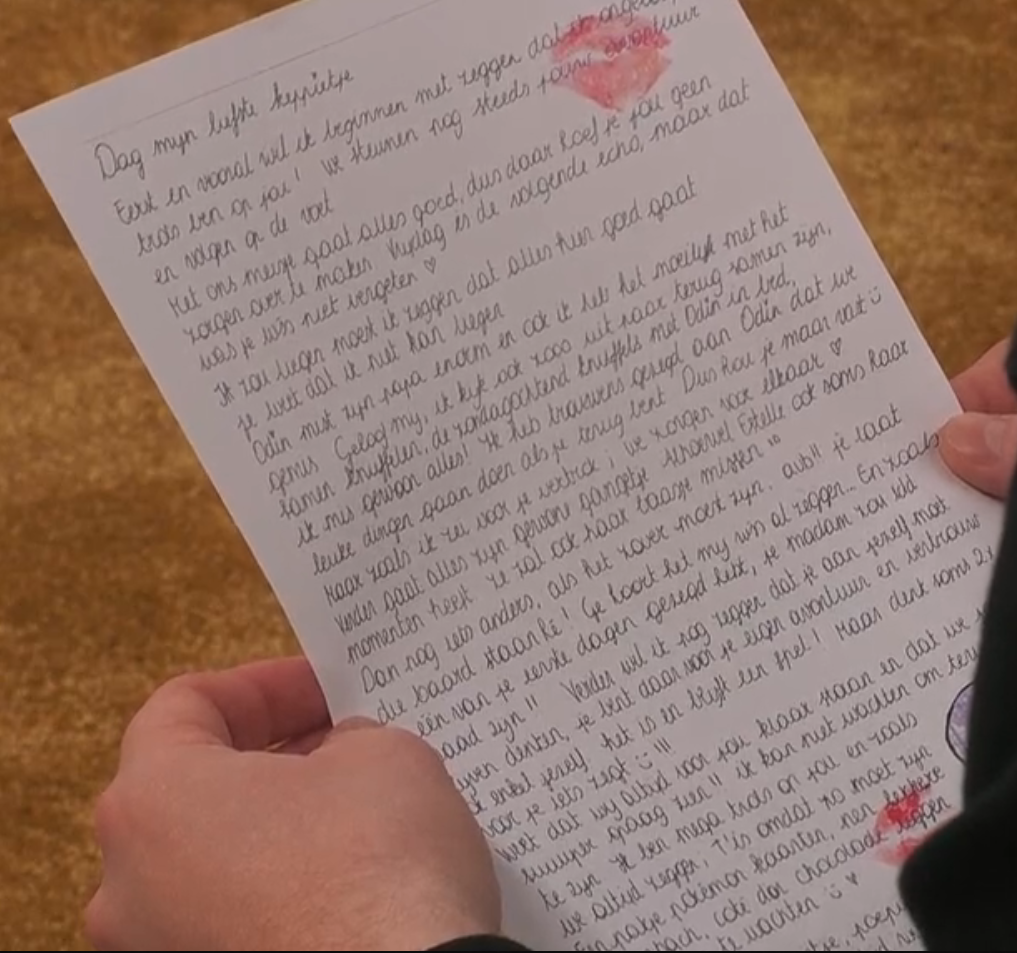 Dag mijn liefste
Eerst en vooral wil ik beginnen met zeggen dat ik
trots ben op jou! We steunen nog steeds jouw avontuur
en volgen op de voet
Met ons meisje gaat alles goed, dus daar hoef je jou geen
zorgen over te maken Vrijdag is de volgende echo, maar dat
was je wss niet vergeten ♡
Ik zou liegen moest ik zeggen dat alles hier goed gaat
je weet dat ik niet kan liegen
Odin mist zijn papa enorm en ook ik heb het moeilijk met het
gemis Geloof mij, ik kijk ook zooo uit naar terug samen zijn,
samen knuffelen, de zondagochtend knuffels met Odin in bed,
ik mis gewoon alles! Ik heb trouwens gezegd aan Odin dat we
leuke dingen gaan doen als je terug bent Dus hou je maar vast ☺
Maar zoals ik zei voor je vertrok; we zorgen voor elkaar ♡
Verder gaat alles zijn gewone gangetje Alhoewel Estelle ook soms haar
momenten heeft Ze zal ook haar baasje missen
Dan nog iets anders, als het zover moest zijn, aub!! je laat
die baard staan hé! Ge hoort het mij wss al zeggen.. En zoals
één van je eerste dagen gezegd hebt, je madam zou
zijn!! Verder wil ik nog zeggen dat je aan jezelf moet
denken, je bent daar voor je eigen avontuur en
enkel jezelf het is en blijft een spel! Maar denk soms 2x
voor je iets zegt ☺!!!
Weet dat wij altijd voor jou klaar staan en dat we
graag zien!! ik kan niet wachten om
te zijn Ik ben mega trots op jou en zoals
we altijd zeggen, T'is omdat zo moet zijn
Een pakje pokémon kaarten, nen lekkere
coté dor chocolade liggen
te wachten ☺ ♥